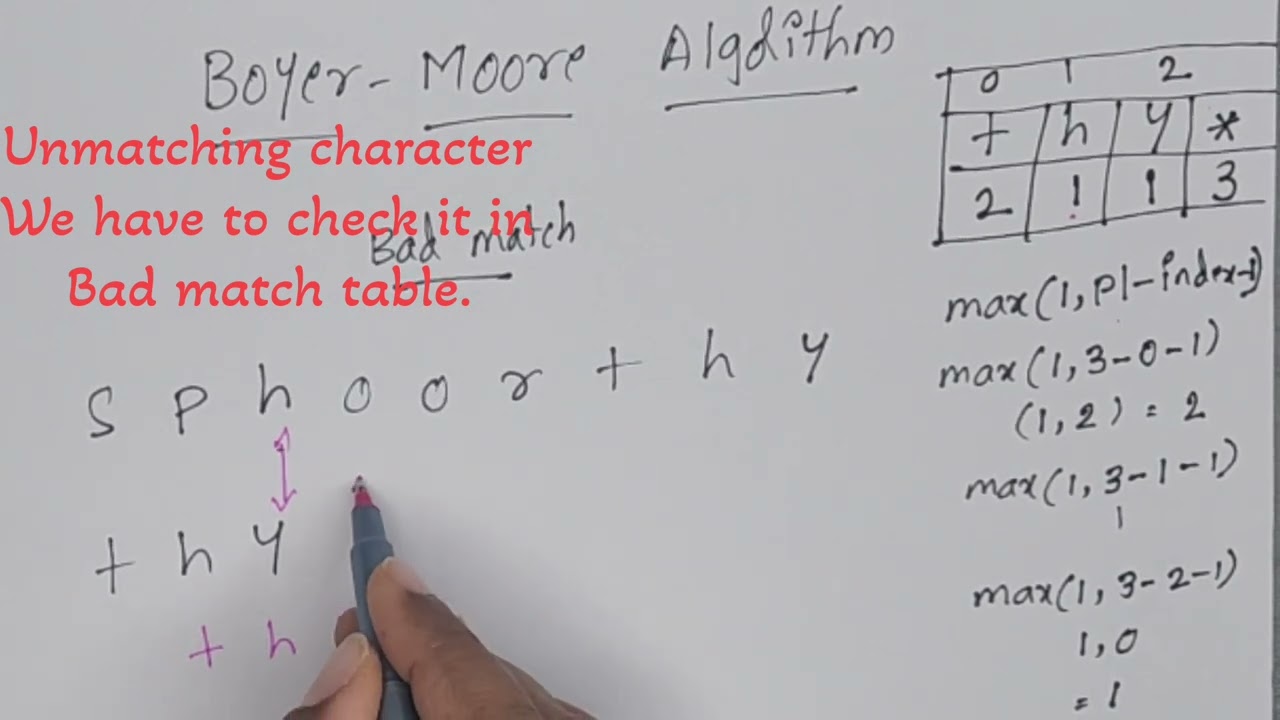 Boyer-Moore Algorithm
Unmatching character
We have to check it in
Bad match table.
Bad match
S p h o o r t h y
t h y
t h
0 1 2
t h y *
2 1 1 3
max(1, pl-index-1)
max(1, 3-0-1)
(1, 2) = 2
max(1, 3-1-1)
1
max(1, 3-2-1)
1, 0
= 1